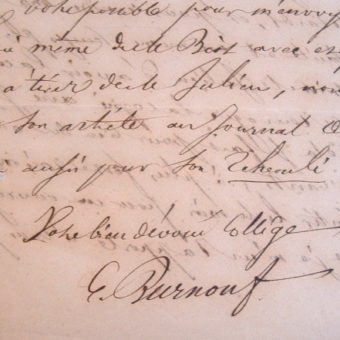 votre possible pour m'envoy
à même de le Biot avec ex
à tirer de le Julien,
son article au Journal
aussi pour son Tcheouli
Votre bien dévoué Collège
E. Burnouf